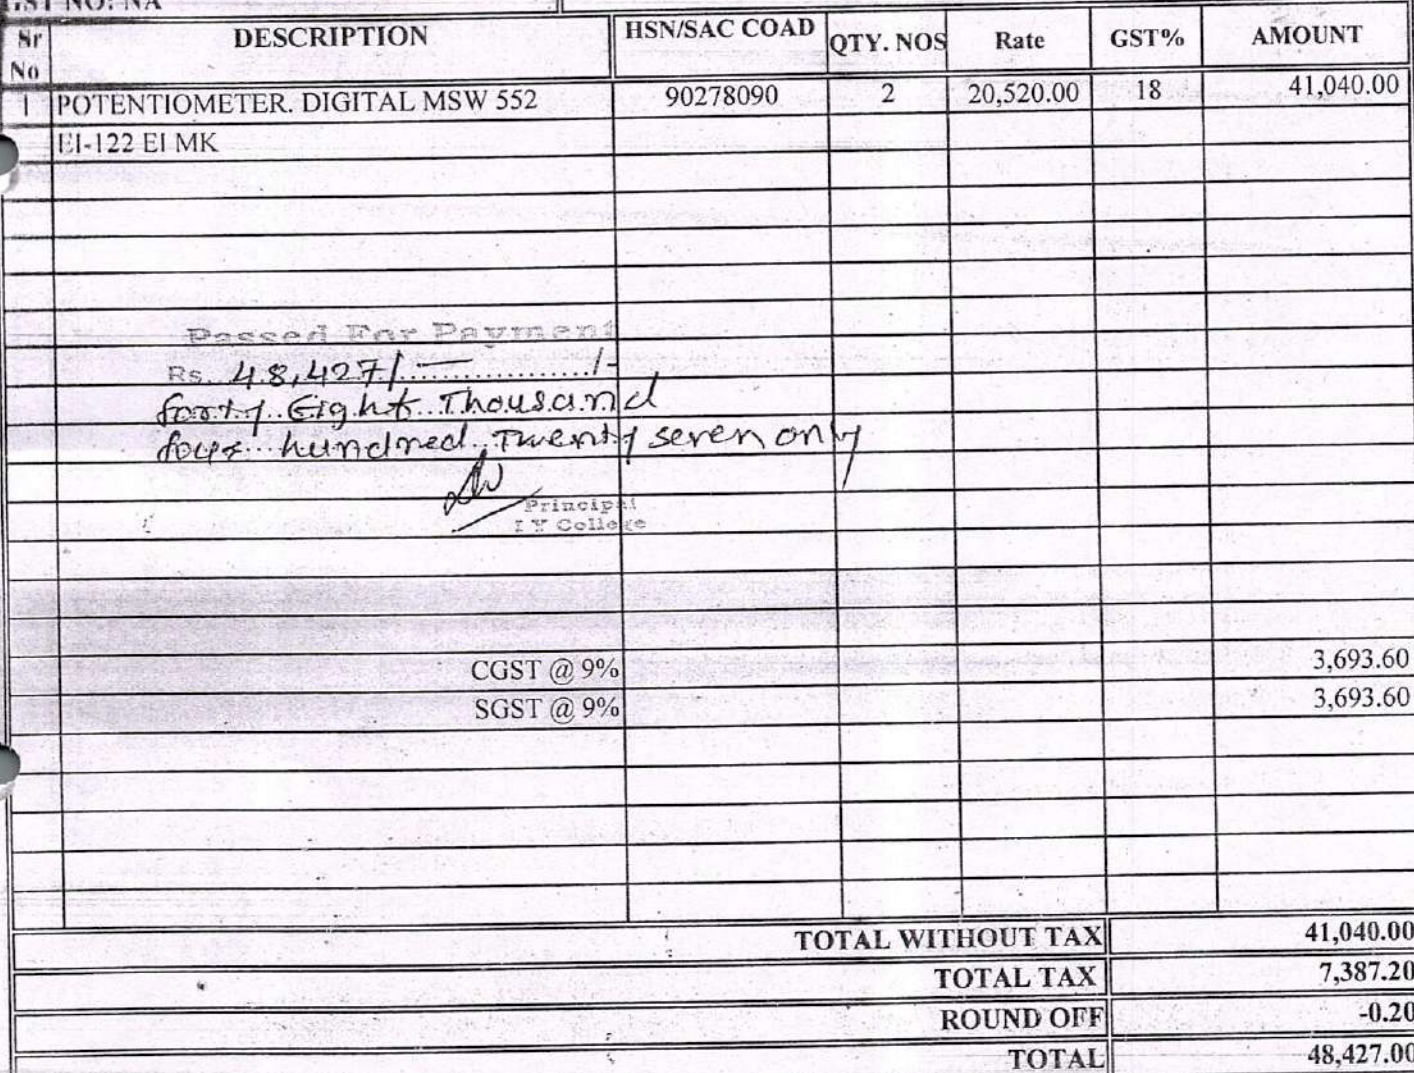 GST NO: NA
Sr No DESCRIPTION HSN/SAC COAD QTY. NOS Rate GST% AMOUNT
1 POTENTIOMETER. DIGITAL MSW 552 90278090 2 20,520.00 18 41,040.00
EI-122 EI MK
Passed For Payment
Rs. 48,427/- /-
forty Eight Thousand
four hundred Twenty seven only
Principal
I Y College
CGST @ 9% 3,693.60
SGST @ 9% 3,693.60
TOTAL WITHOUT TAX 41,040.00
TOTAL TAX 7,387.20
ROUND OFF -0.20
TOTAL 48,427.00